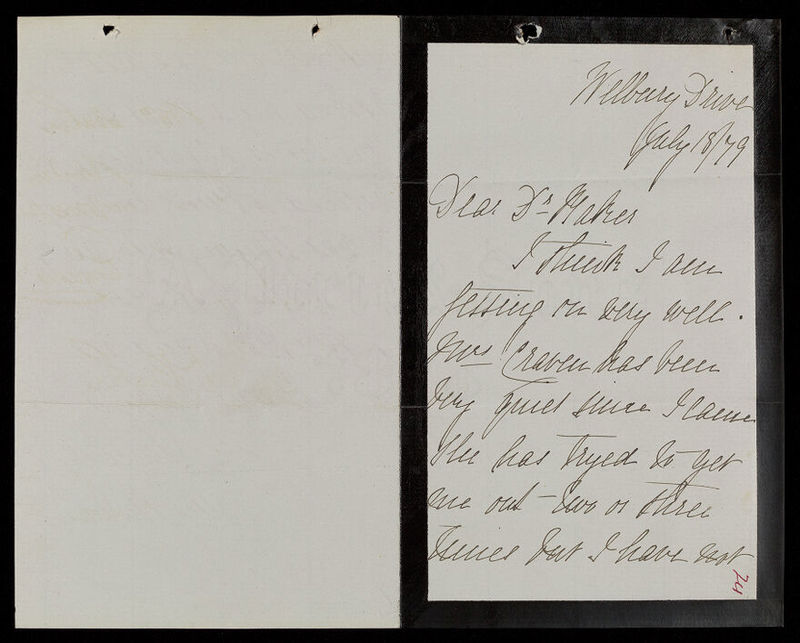 Welbury Drive
July 18/79
Dear Dr Baker
I think I am
getting on very well.
Mrs Craven has been
very quiet since I came
She has tryed to get
me out - two or three
times but I have not
74